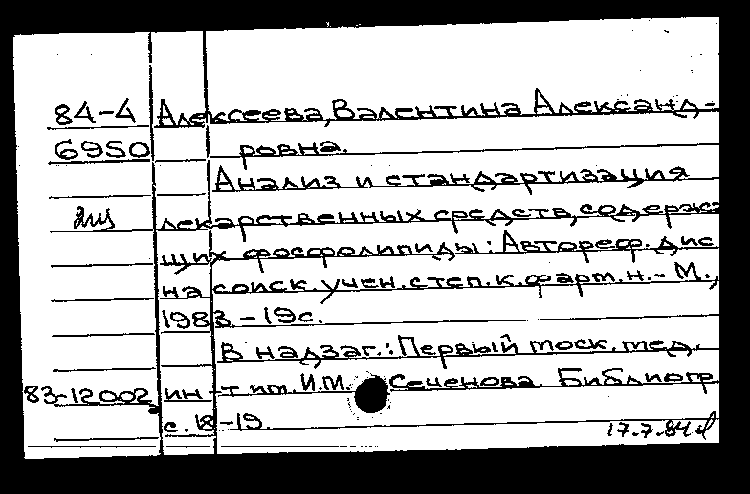 84-4 Алексеева, Валентина Александ-
6950 ровна.
Анализ и стандартизация
лекарственных средств, содержа
щих фосфолипиды: Автореф. дис
на соиск. учен. степ. к. фарм. н. - М.,
1983. - 19 с.
В надзаг.: Первый моск. мед.
83-12002 ин-т им. И.М. Сеченова. Библиогр
с. 18-19.
17.7.84